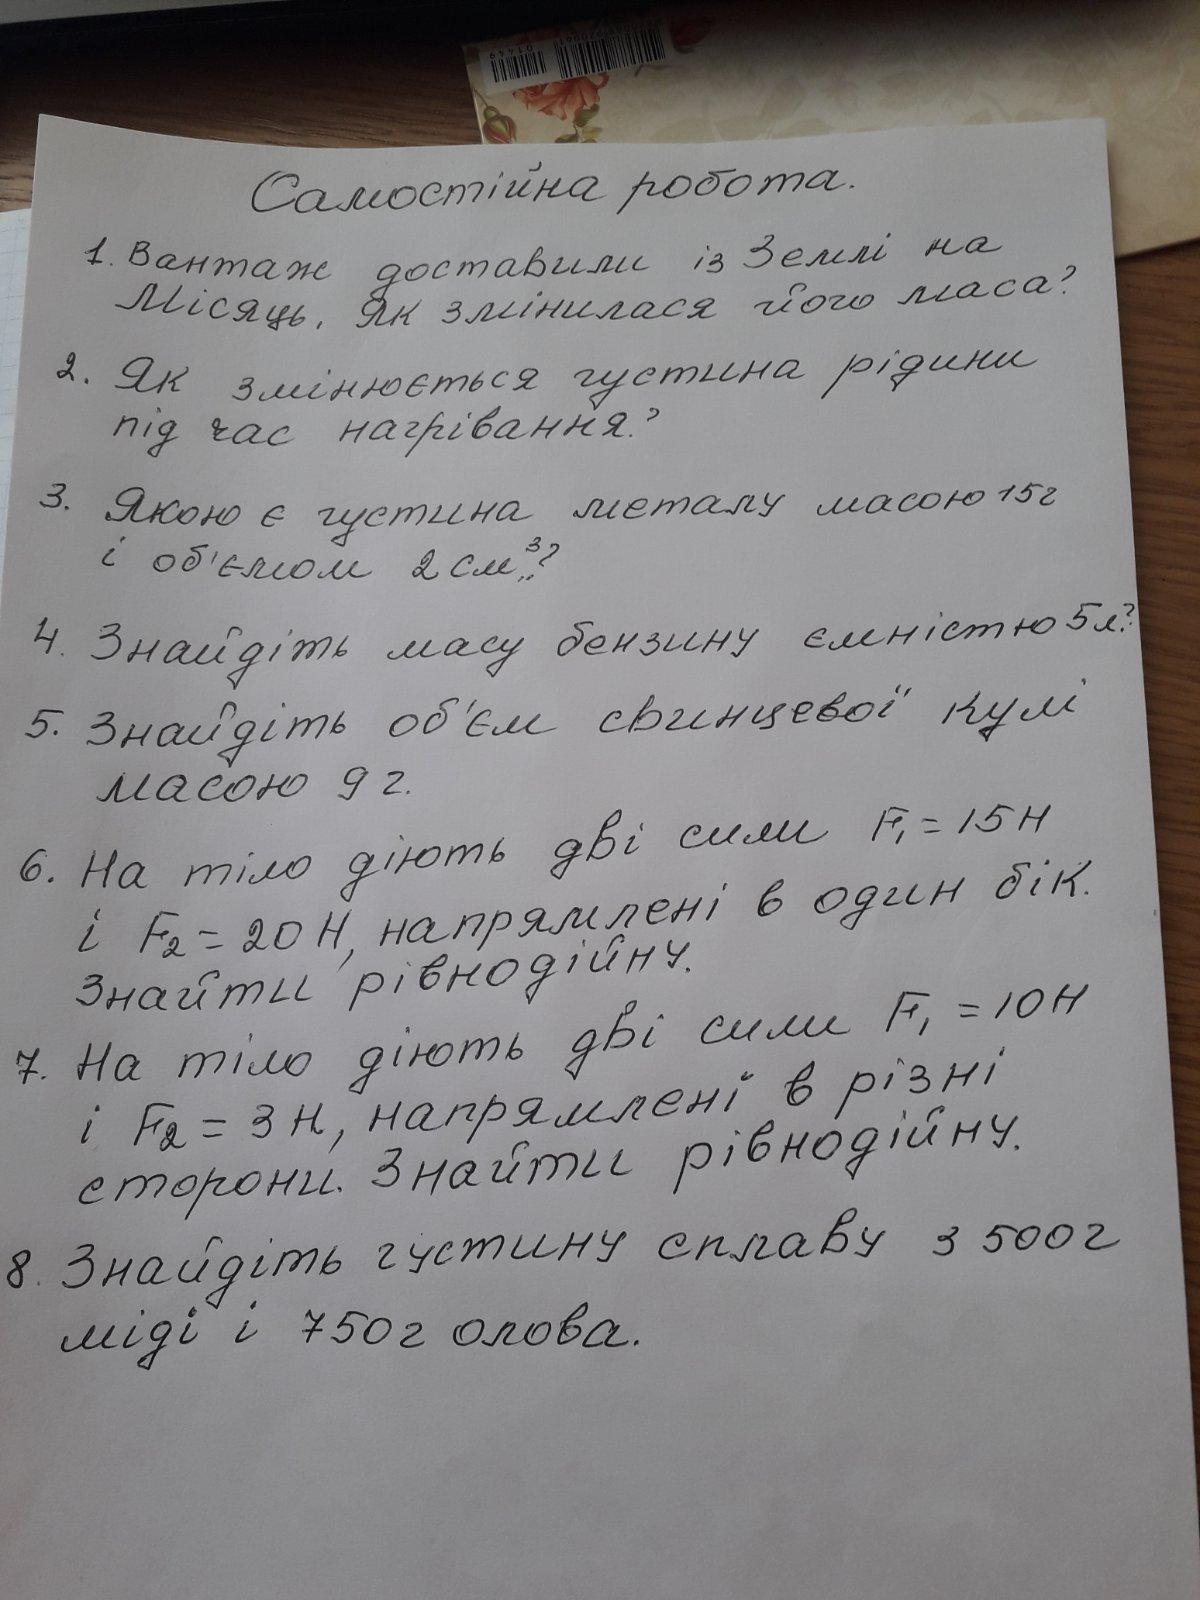 01449
Самостійна робота.
1. Вантаж доставили із Землі на
Місяць. Як змінилася його маса?
2. Як змінюється густина рідини
під час нагрівання?
3. Якою є густина металу масою 15г
і об'ємом 2 см³?
4. Знайдіть масу бензину ємністю 5л?
5. Знайдіть об'єм свинцевої кулі
масою 9 г.
6. На тіло діють дві сили F₁ = 15 Н
і F₂ = 20 Н, напрямлені в один бік.
Знайти рівнодійну.
7. На тіло діють дві сили F₁ = 10 Н
і F₂ = 3 Н, напрямлені в різні
сторони. Знайти рівнодійну.
8. Знайдіть густину сплаву з 500 г
міді і 750 г олова.